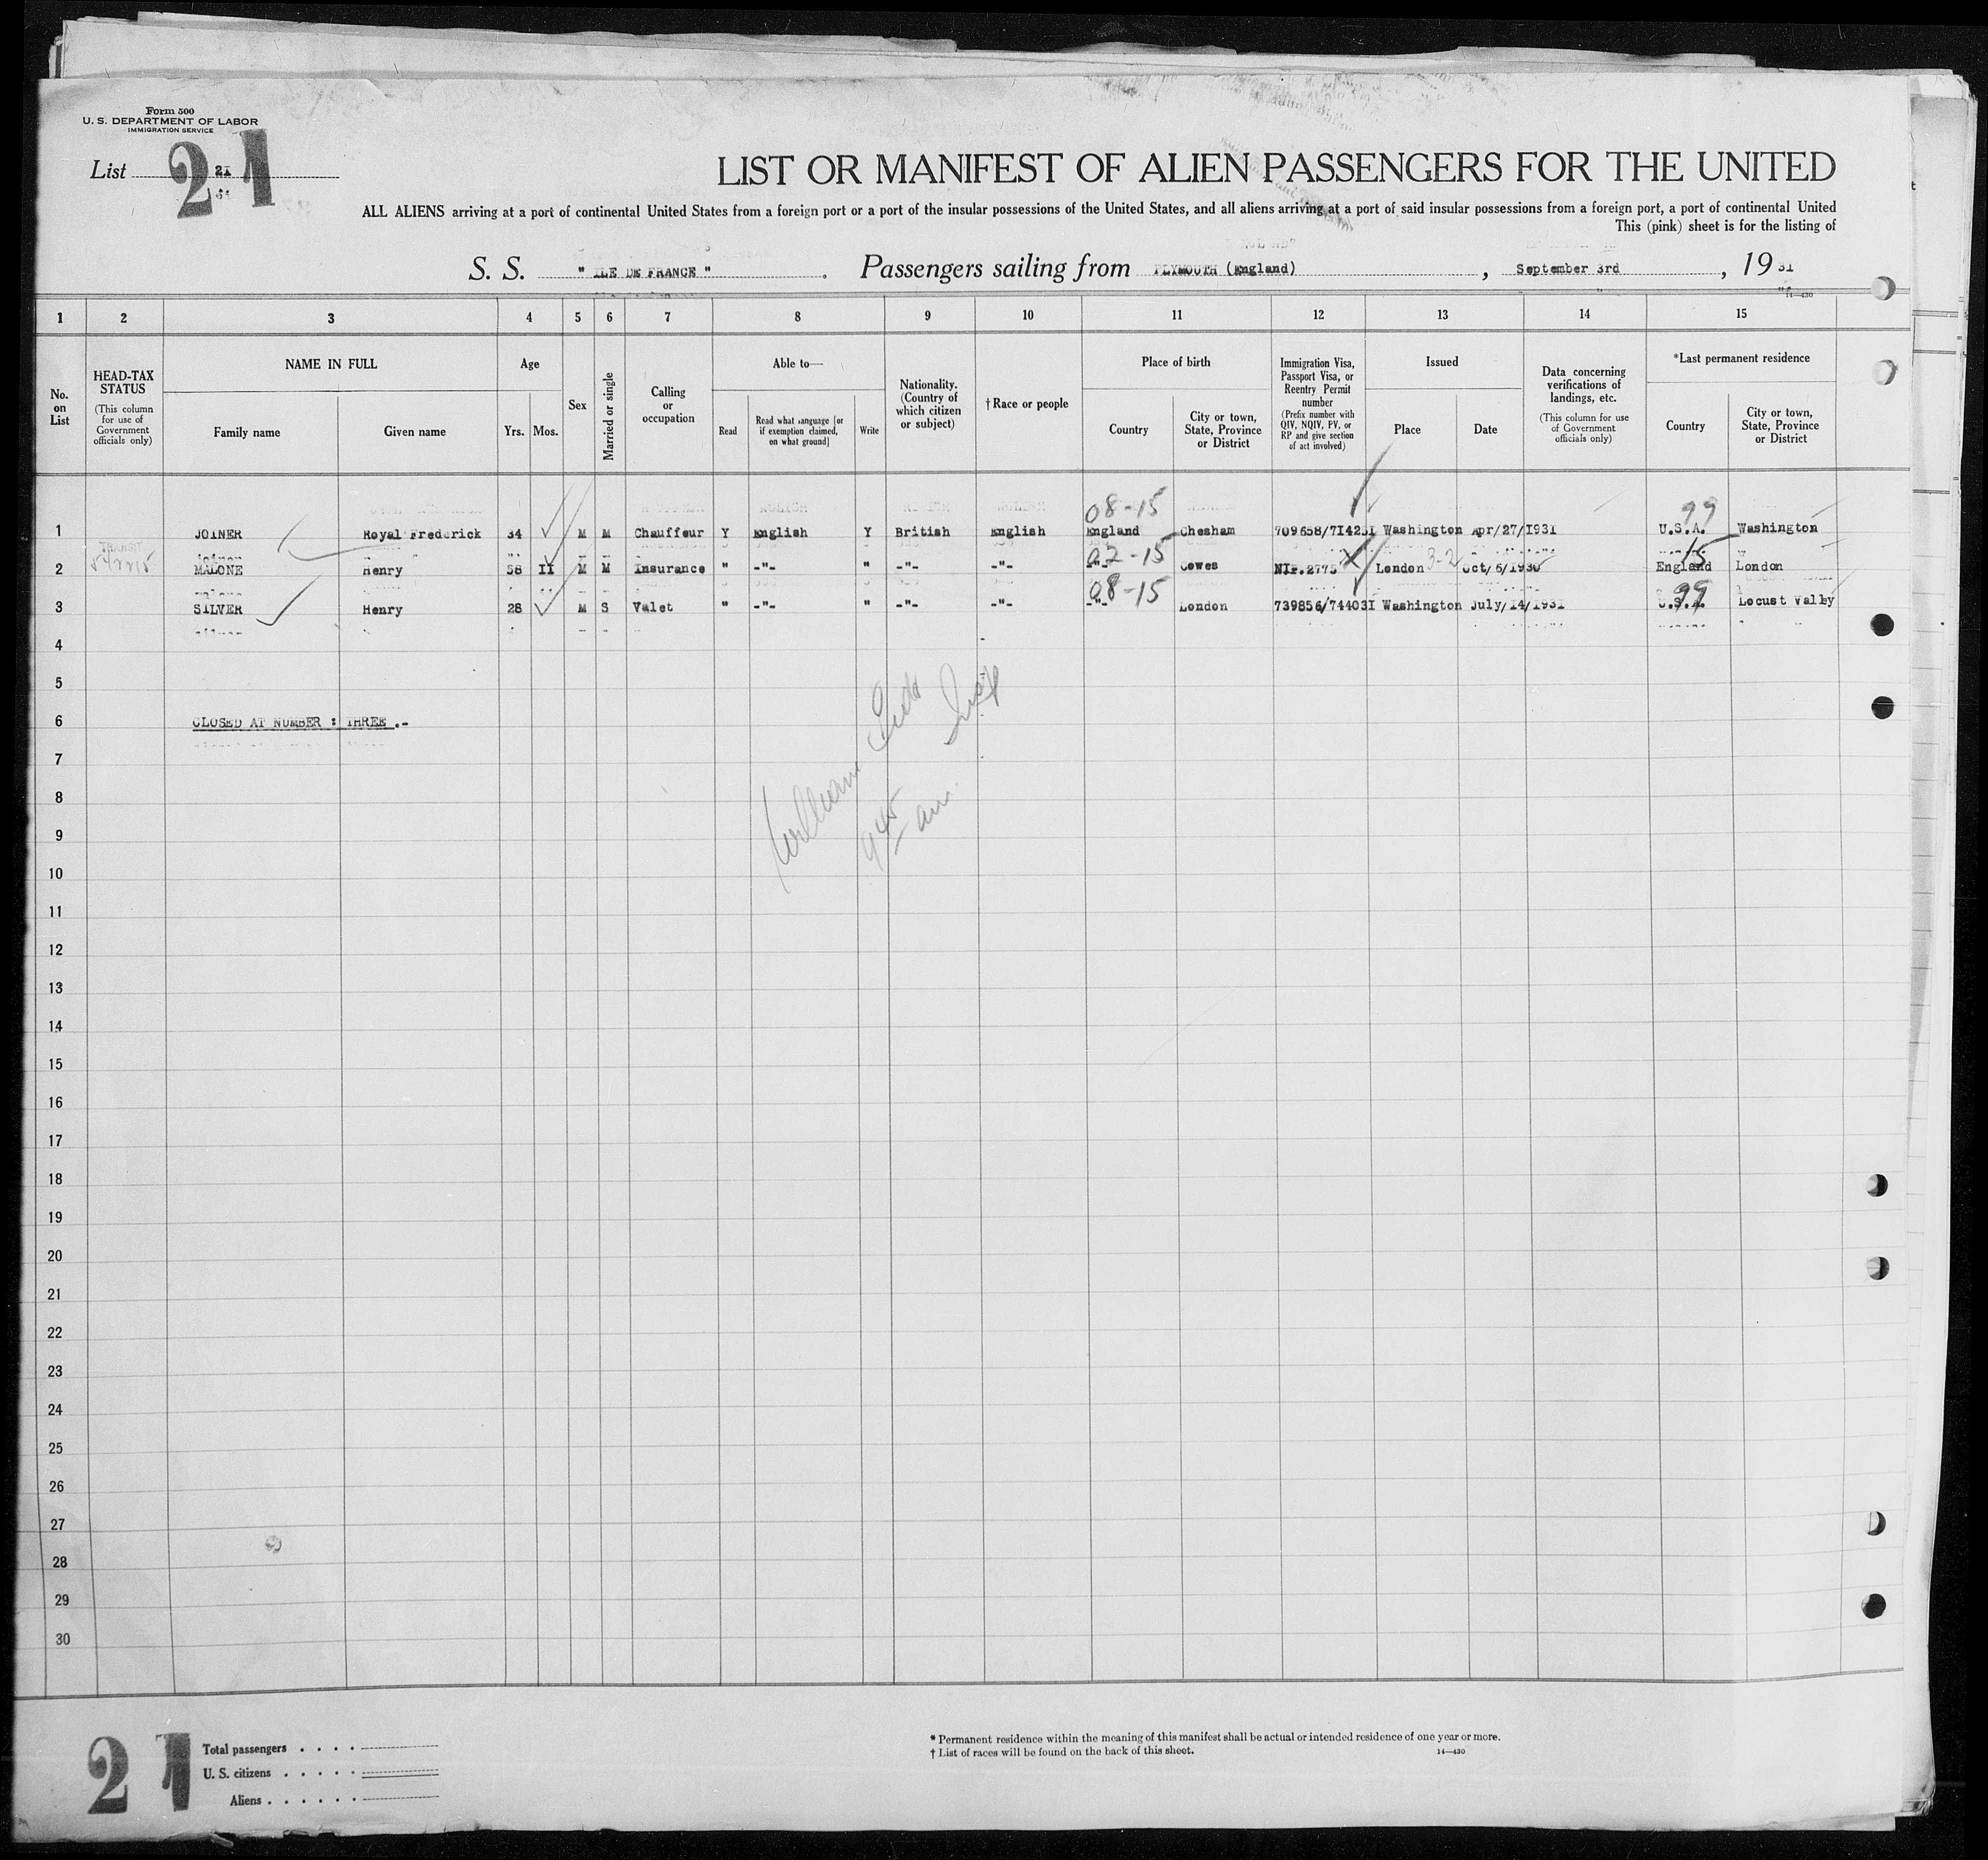 Form 500
U. S. DEPARTMENT OF LABOR
IMMIGRATION SERVICE
List 21
21
LIST OR MANIFEST OF ALIEN PASSENGERS FOR THE UNITED
ALL ALIENS arriving at a port of continental United States from a foreign port or a port of the insular possessions of the United States, and all aliens arriving at a port of said insular possessions from a foreign port, a port of continental United
This (pink) sheet is for the listing of
S. S. " ILE DE FRANCE " . Passengers sailing from PLYMOUTH (England) , September 3rd , 19 31
14—430
1 2 3 4 5 6 7 8 9 10 11 12 13 14 15
No. on List
HEAD-TAX STATUS
(This column for use of Government officials only)
NAME IN FULL
Family name
Given name
Age
Yrs. Mos.
Sex
Married or single
Calling or occupation
Able to—
Read
Read what language [or if exemption claimed, on what ground]
Write
Nationality. (Country of which citizen or subject)
†Race or people
Place of birth
Country
City or town, State, Province or District
Immigration Visa, Passport Visa, or Reentry Permit number
(Prefix number with QIV, NQIV, PV, or RP and give section of act involved)
Issued
Place
Date
Data concerning verifications of landings, etc.
(This column for use of Government officials only)
*Last permanent residence
Country
City or town, State, Province or District
08-15 99
1 JOINER Royal Frederick 34 M M Chauffeur Y English Y British English England Chesham 709658/71423I Washington Apr/27/1931 U.S.A. Washington
TRANSIT
02-15 15
2 MALONE Henry 58 II M M Insurance " -"- " -"- -"- -"- Cowes 2775 London 3-2 Oct/6/1930 England London
08-15 99
3 SILVER Henry 28 M S Valet " -"- " -"- -"- -"- London 739856/74403I Washington July/14/1931 U.S.A. Locust Valley
4
5
6 CLOSED AT NUMBER : THREE .-
7
William
8
9
9 45 am
10
11
12
13
14
15
16
17
18
19
20
21
22
23
24
25
26
27
28
29
30
21
Total passengers
U. S. citizens
Aliens
* Permanent residence within the meaning of this manifest shall be actual or intended residence of one year or more.
† List of races will be found on the back of this sheet.
14—430